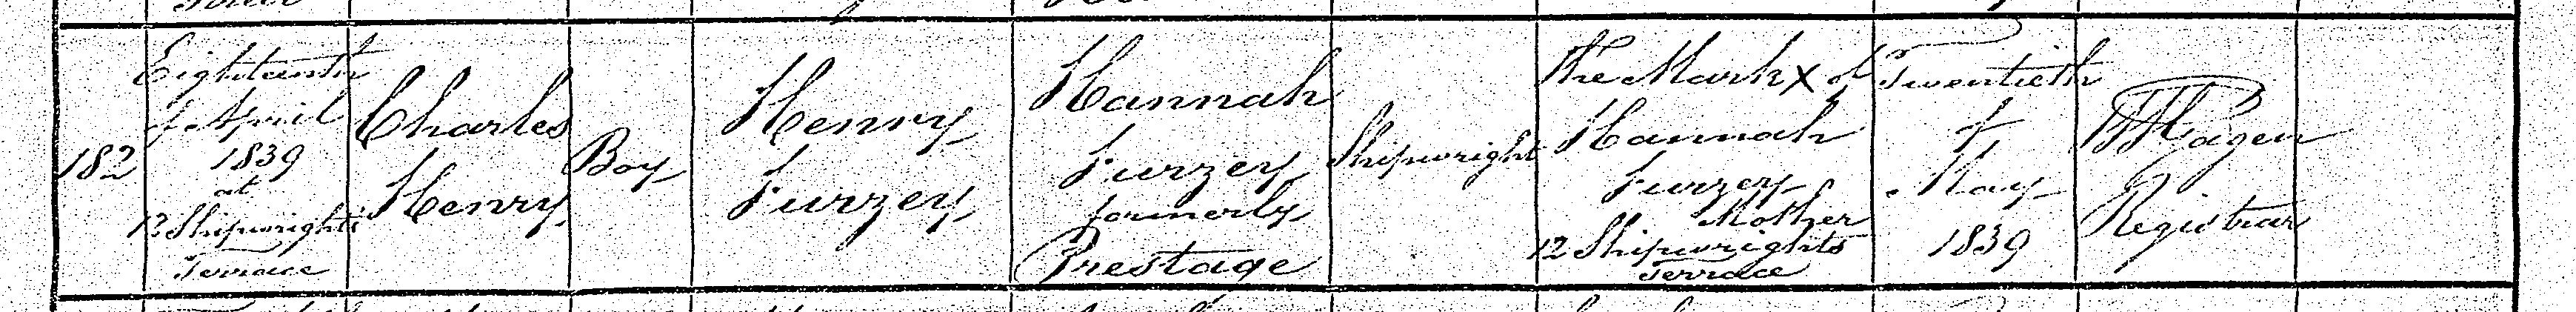 182
Eighteenth
of April
1839
at
12 Shipwrights
Terrace
Charles
Henry
Boy
Henry
Furzey
Hannah
Furzey
formerly
Prestage
Shipwright
The Mark X of
Hannah
Furzey
Mother
12 Shipwrights
Terrace
Twentieth
of
May
1839
Registrar